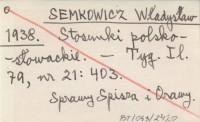 SEMKOWICZ Władysław
1938. Stosunki polsko-
-słowackie. — Tyg. Il.
79, nr 21: 403.
Sprawy Spisza i Orawy.